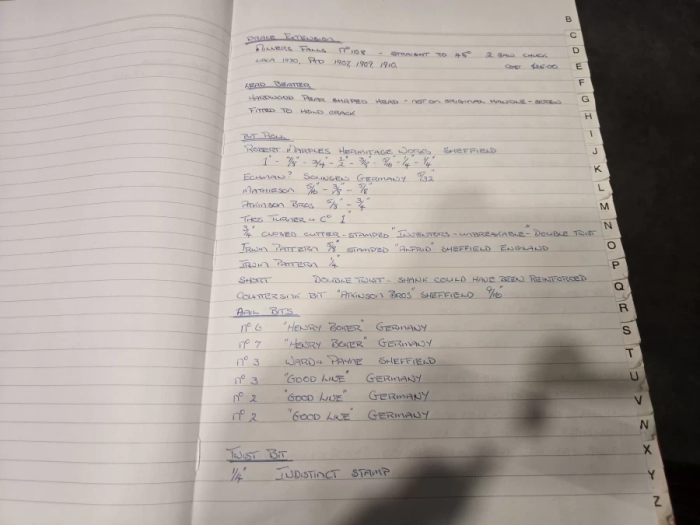 BRACE EXTENSION
MILLERS FALLS No 108 - STRAIGHT TO 45° 2 JAW CHUCK
CIRCA 1930, PTD 1907, 1909, 1910. COST $25.00
LEAD BEATER
HARDWOOD PEAR SHAPED HEAD - NOT ON ORIGINAL HANDLE - SCREW
FITTED TO HOLD CRACK
BIT ROLL
ROBERT MARPLES HERMITAGE WORKS SHEFFIELD
1" - 7/8" - 3/4" - 1/2" - 3/8" - 5/16" - 1/4" - 1/4"
ECKMAN? SOLINGEN GERMANY 9/32"
MATHIESON 5/16" - 3/8" - 5/8"
ATKINSON BROS 5/8" - 3/4"
THEO TURNER & Co 1"
3/4" CLOSED CUTTER - STAMPED "INVENTORS - UNBREAKABLE" - DOUBLE TWIST
IRWIN PATTERN 5/8" STAMPED SHEFFIELD ENGLAND
IRWIN PATTERN 1/4"
SHORT DOUBLE TWIST - SHANK COULD HAVE BEEN REINFORCED
COUNTERSINK BIT "ATKINSON BROS" SHEFFIELD 9/16"
AWL BITS
No 6 "HENRY BOKER" GERMANY
No 7 "HENRY BOKER" GERMANY
No 3 WARD & PAYNE SHEFFIELD
No 3 "GOOD LINE" GERMANY
No 2 "GOOD LINE" GERMANY
No 2 "GOOD LINE" GERMANY
TWIST BIT
1/4" INDISTINCT STAMP
B
C
D
E
F
G
H
I
J
K
L
M
N
O
P
Q
R
S
T
U
V
N
X
Y
Z